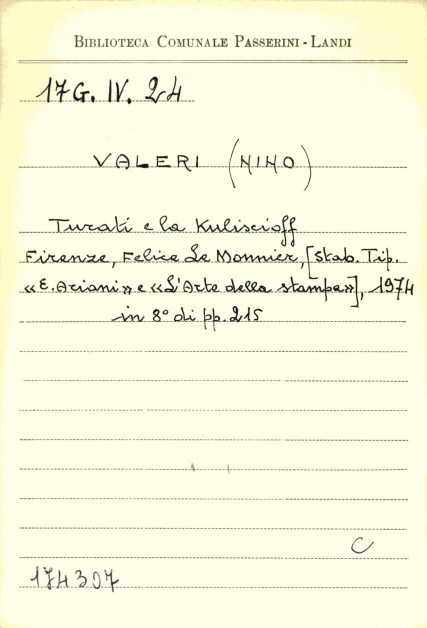 BIBLIOTECA COMUNALE PASSERINI-LANDI
17 G. IV. 24
VALERI (NINO)
Turati e la Kuliscioff
Firenze, Felice Le Monnier, [Stab. Tip.
«E. Ariani» e «L'Arte della stampa»], 1974
in 8° di pp. 215
C
174307